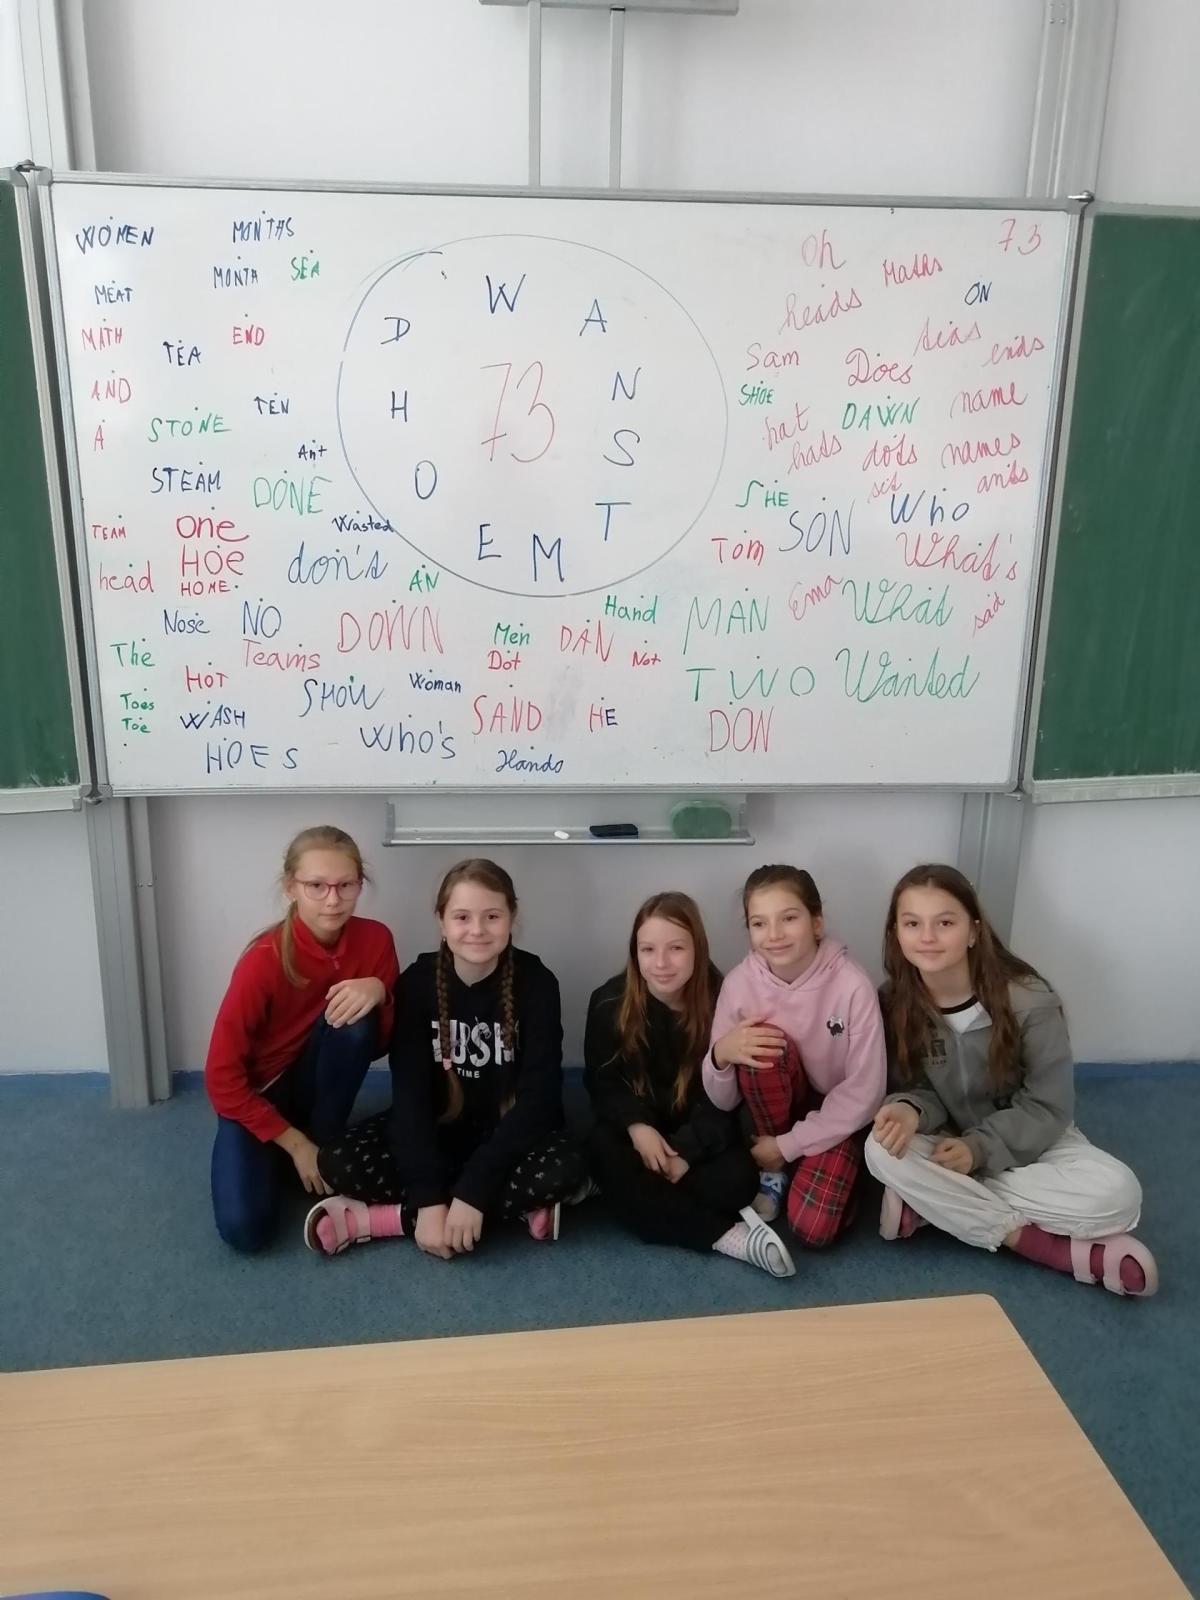 WOMEN
MONTHS
MEAT
MONTH
SEA
MATH
TEA
END
AND
TEN
A
STONE
Ant
STEAM
DONE
Wasted
TEAM
one
head
HOE
HOME
don's
AN
Nose
NO
DOWN
The
Teams
HOT
Toes
Toe
WASH
SHOW
Woman
HOES
Who's
W
A
N
S
T
M
E
O
H
D
73
Men
Dot
DAN
Hand
Not
SAND
HE
Hands
Oh
Maths
73
heads
ON
Sam
Does
seas
ends
SHOE
hat
DAWN
name
hats
dots
names
sit
ants
SHE
SON
Who
Tom
What's
MAN
Ema
What
said
TWO
Wanted
DON
TIME